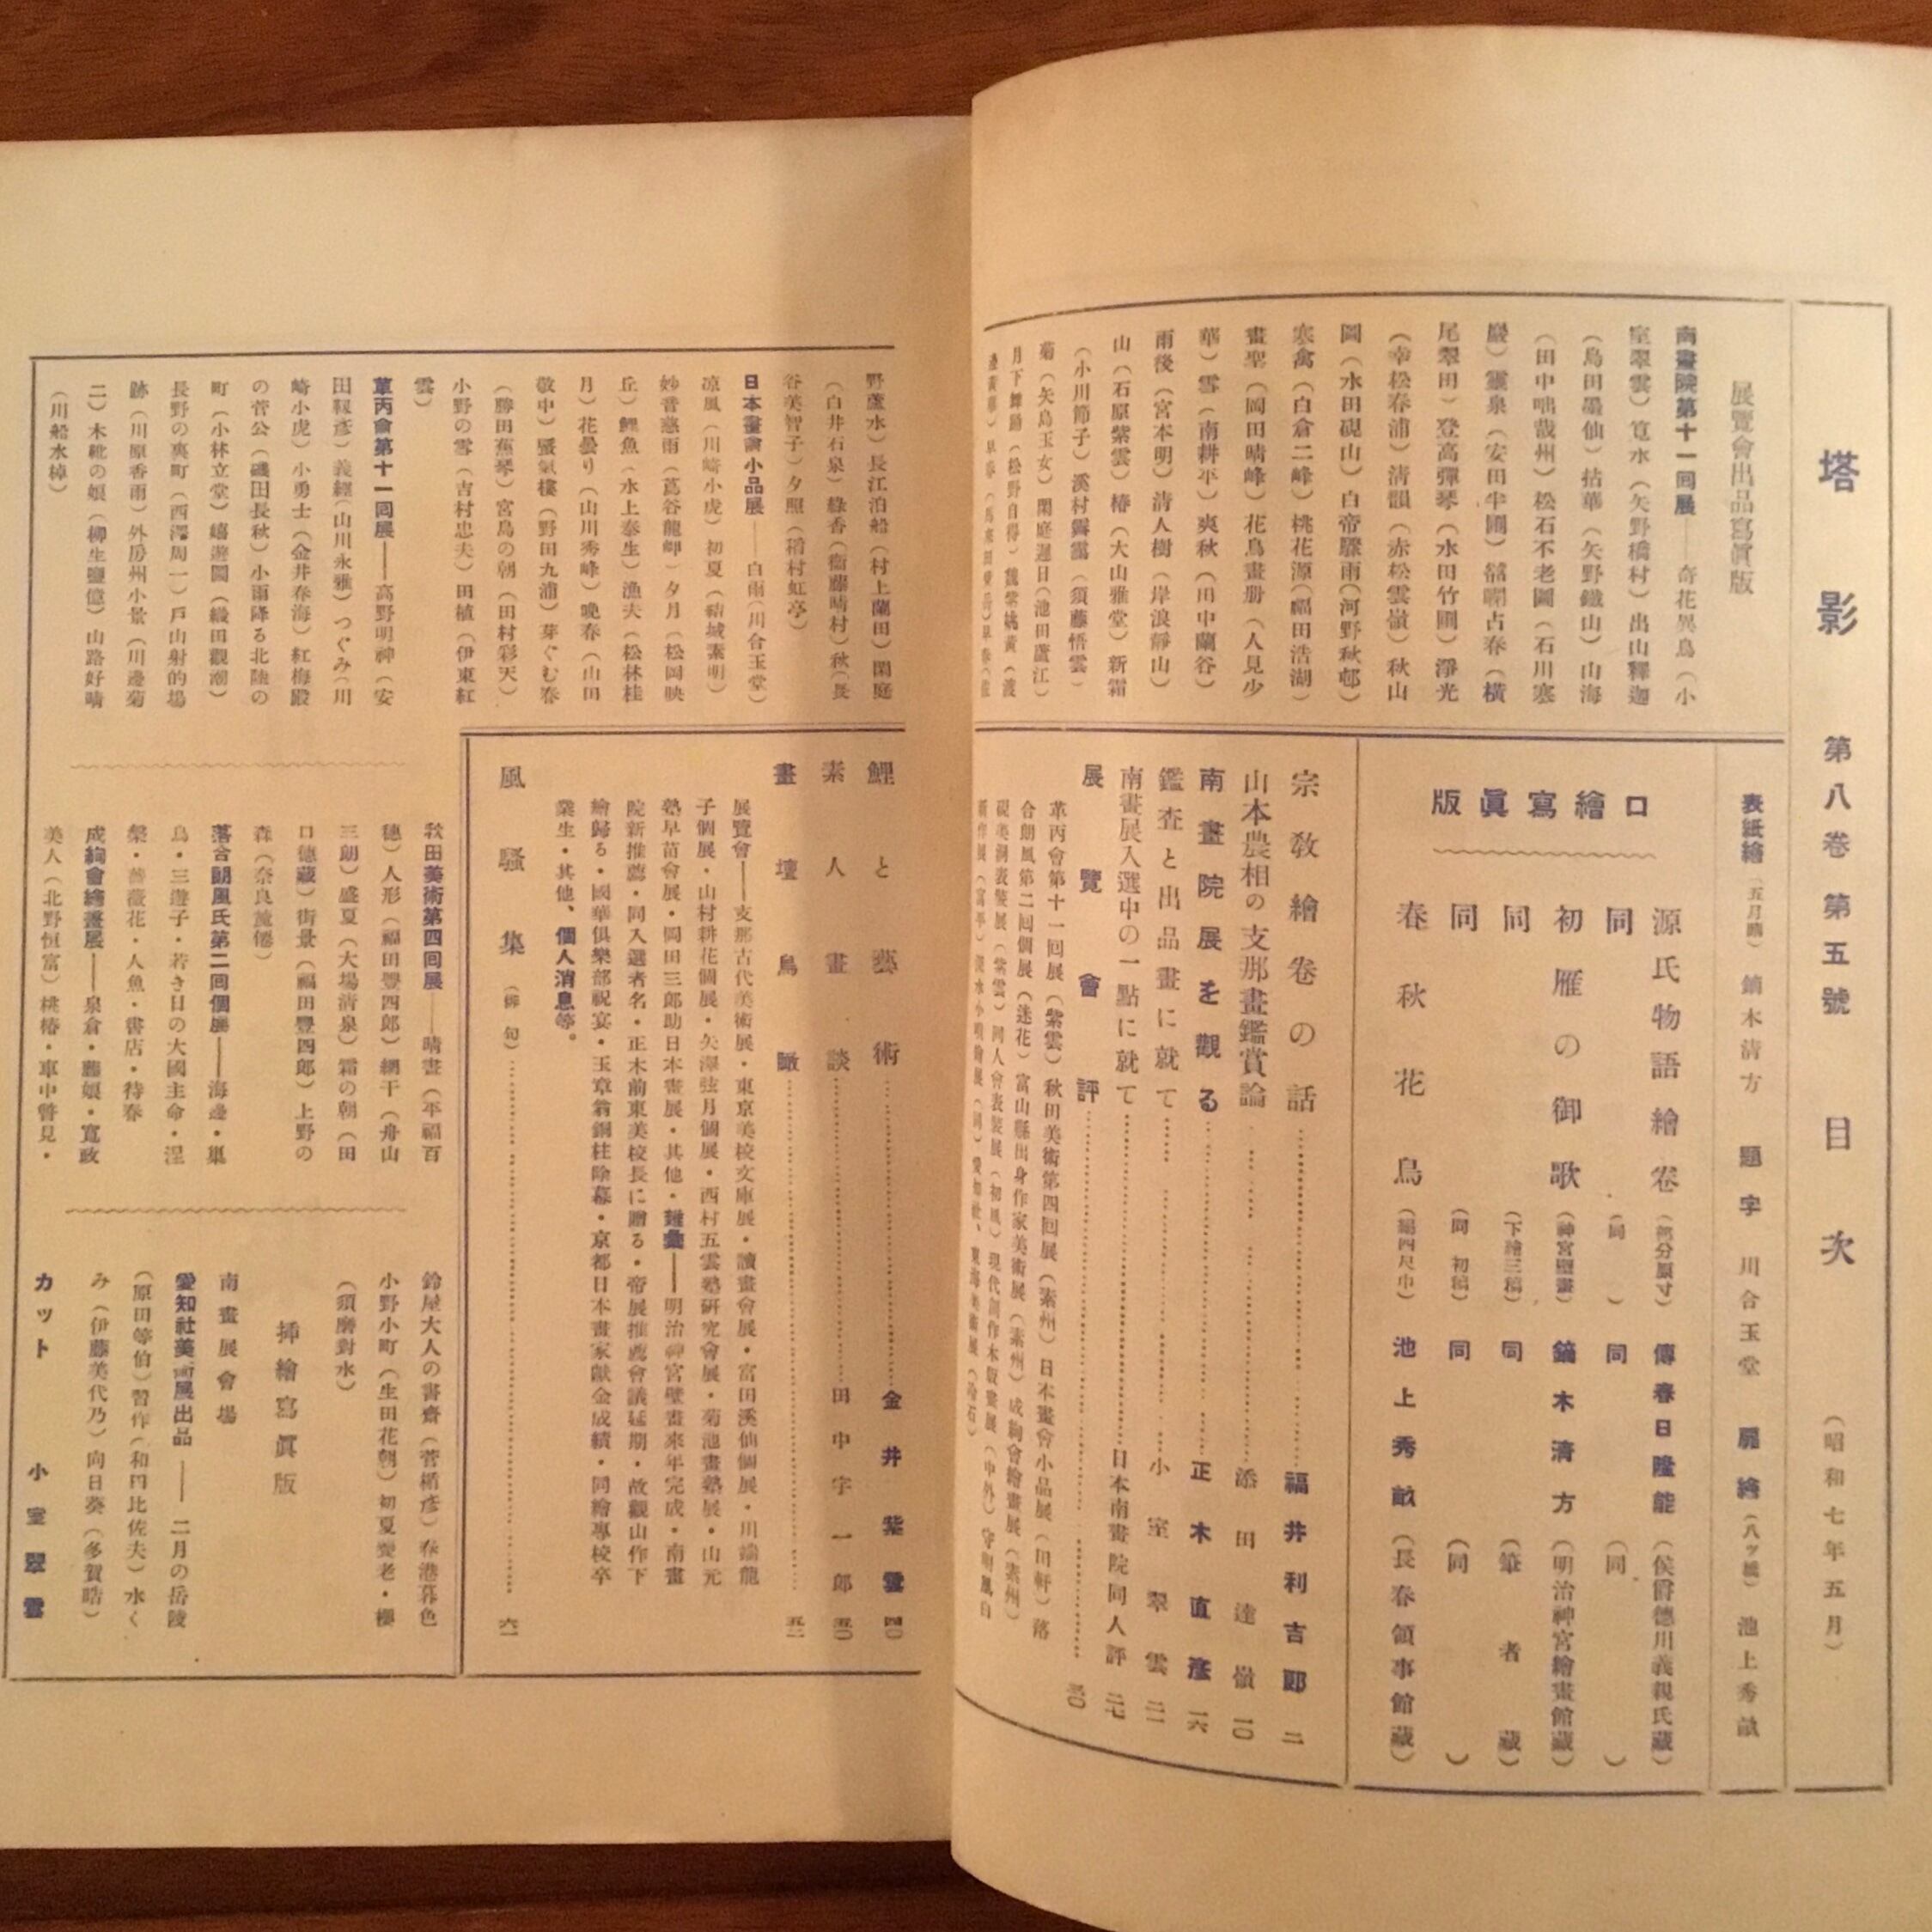 塔影 第八卷 第五號 目次 (昭和七年五月)
表紙繪 (五月晴) 鏑木清方 題字 川合玉堂 扉繪 (八ツ橋) 池上秀畝
口繪寫眞版
源氏物語繪卷 (部分原寸) 傳春日隆能 (侯爵德川義親氏藏)
同 (同) 同 (同)
初雁の御歌 (神宮壁畫) 鏑木清方 (明治神宮繪畫館藏)
同 (下繪三稿) 同 (筆者藏)
同 (同 初稿) 同 (同)
春秋花鳥 (絹四尺巾) 池上秀畝 (長春領事館藏)
宗敎繪卷の話 福井利吉郎 二
山本農相の支那畫鑑賞論 添田達嶺 一〇
南畫院展を觀る 正木直彥 一六
鑑査と出品畫に就て 小室翠雲 二一
南畫展入選中の一點に就て 日本南畫院同人評 二七
展覽會評 三〇
革丙會第十一回展 (紫雲) 秋田美術第四回展 (素州) 日本畫會小品展 (田軒) 落
合朗風第二回個展 (迷花) 富山縣出身作家美術展 (素州) 成絢會繪畫展 (素州)
展覽會出品寫眞版
南畫院第十一回展——奇花異鳥 (小
室翠雲) 寬水 (矢野橋村) 出山釋迦
(島田墨仙) 拈華 (矢野鐵山) 山海
(田中咄哉州) 松石不老圖 (石川寒
巖) 靈泉 (安田半圃) 占春 (橫
尾翠田) 登高彈琴 (水田竹圃) 淨光
(幸松春浦) 淸韻 (赤松雲嶺) 秋山
圖 (水田硯山) 白帝驟雨 (河野秋邨)
寒禽 (白倉二峰) 桃花源 (福田浩湖)
畫聖 (岡田晴峰) 花鳥畫册 (人見少
華) 雪 (南耕平) 爽秋 (田中蘭谷)
雨後 (宮本明) 淸人樹 (岸浪靜山)
山 (石原紫雲) 椿 (大山雅堂) 新霜
(小川節子) 溪村霽靄 (須藤悟雲)
菊 (矢島玉女) 閑庭遲日 (池田蘆江)
月下舞踊 (松野自得) 魏紫姚黃 (渡
野蘆水) 長江泊船 (村上蘭田) 閑庭
(白井石泉) 綠香 (衞藤晴村) 秋 (長
谷美智子) 夕照 (稻村虹亭)
日本畫會小品展——白雨 (川合玉堂)
凉風 (川崎小虎) 初夏 (結城素明)
妙音慈雨 (蔦谷龍岬) 夕月 (松岡映
丘) 鯉魚 (水上泰生) 漁夫 (松林桂
月) 花曇り (山川秀峰) 晚春 (山田
敬中) 蜃氣樓 (野田九浦) 芽ぐむ春
(勝田蕉琴) 宮島の朝 (田村彩天)
小野の雪 (吉村忠夫) 田植 (伊東紅
雲)
革丙會第十一回展——高野明神 (安
田靫彥) 義經 (山川永雅) つぐみ (川
崎小虎) 小勇士 (金井春海) 紅梅殿
の菅公 (磯田長秋) 小雨降る北陸の
町 (小林立堂) 嬉遊圖 (織田觀潮)
長野の裏町 (西澤周一) 戶山射的場
跡 (川原香雨) 外房州小景 (川邊菊
二) 木靴の娘 (柳生鹽億) 山路好晴
(川船水棹)
鯉と藝術 金井紫雲 四〇
素人畫談 田中宇一郎 五〇
畫壇鳥瞰 五二
展覽會——支那古代美術展・東京美校文庫展・讀畫會展・富田溪仙個展・川端龍
子個展・山村耕花個展・矢澤弦月個展・西村五雲塾硏究會展・菊池畫塾展・山元
塾早苗會展・岡田三郎助日本畫展・其他・雜彙——明治神宮壁畫來年完成・南畫
院新推薦・同入選者名・正木前東美校長に贈る・帝展推薦會議延期・故觀山作下
繪歸る・國華俱樂部祝宴・玉章翁銅柱除幕・京都日本畫家獻金成績・同繪專校卒
業生・其他、個人消息等。
風騷集 (俳句) 六一
秋田美術第四回展——晴晝 (平福百
穗) 人形 (福田豐四郎) 網干 (舟山
三朗) 盛夏 (大場淸泉) 霜の朝 (田
口德藏) 街景 (福田豐四郎) 上野の
森 (奈良)
落合朗風氏第二回個展——海邊・巢
鳥・三遊子・若き日の大國主命・涅
槃・薔薇花・人魚・書店・待春
成絢會繪畫展——泉倉・麗娘・寬政
美人 (北野恒富) 桃椿・車中瞥見・
鈴屋大人の書齋 (菅楯彥) 春港暮色
小野小町 (生田花朝) 初夏・養老・櫻
(須磨對水)
揷繪寫眞版
南畫展會場
愛知社美術展出品——二月の岳陵
(原田等伯) 習作 (和田比佐夫) 水く
み (伊藤美代乃) 向日葵 (多賀晧)
カット 小室翠雲